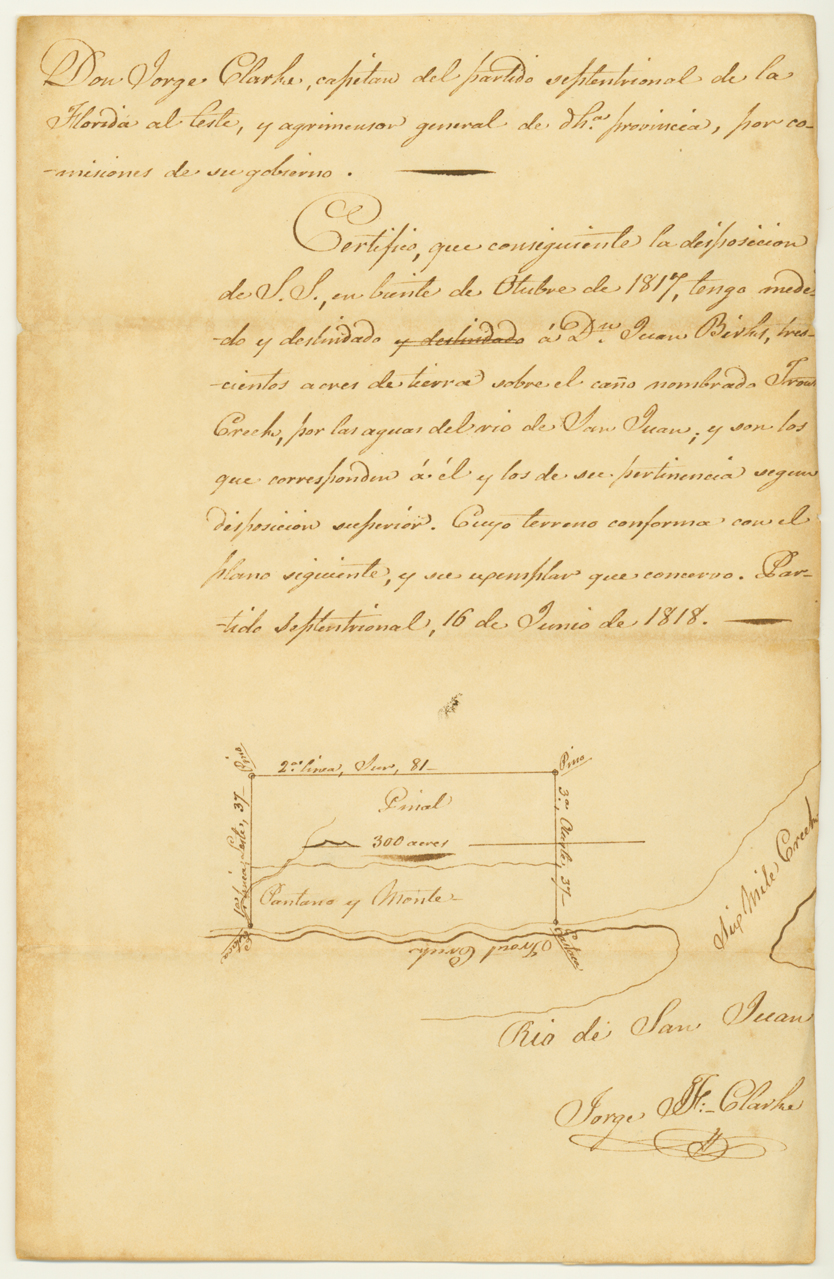 Don Jorge Clarke, capitan del partido septentrional de la
Florida al leste, y agrimensor general de dha. provincia, por co-
-misiones de su gobierno.
Certifico, que consiguiente la disposicion
de S. S., en biente de Otubre de 1817, tengo medi-
-do y deslindado y deslindado á Dn. Juan Birks, tres-
-cientos acres de tierra sobre el caño nombrado Trout
Creek, por las aguas del rio de San Juan; y son los
que corresponden á él y los de su pertinencia segun
disposicion superior. Cuyo terreno conforma con el
plano siguiente, y su exemplar que concervo. Par-
-tido septentrional, 16 de Junio de 1818.
Pino
2a. linea, Sur, 81
Pino
1a. linea, Leste, 37
Pinal
3a., Oeste, 37
300 acres
Pantano y Monte
Estaca
Trout Creek
Six Mile Creek
Rio de San Juan
Jorge J. F. Clarke